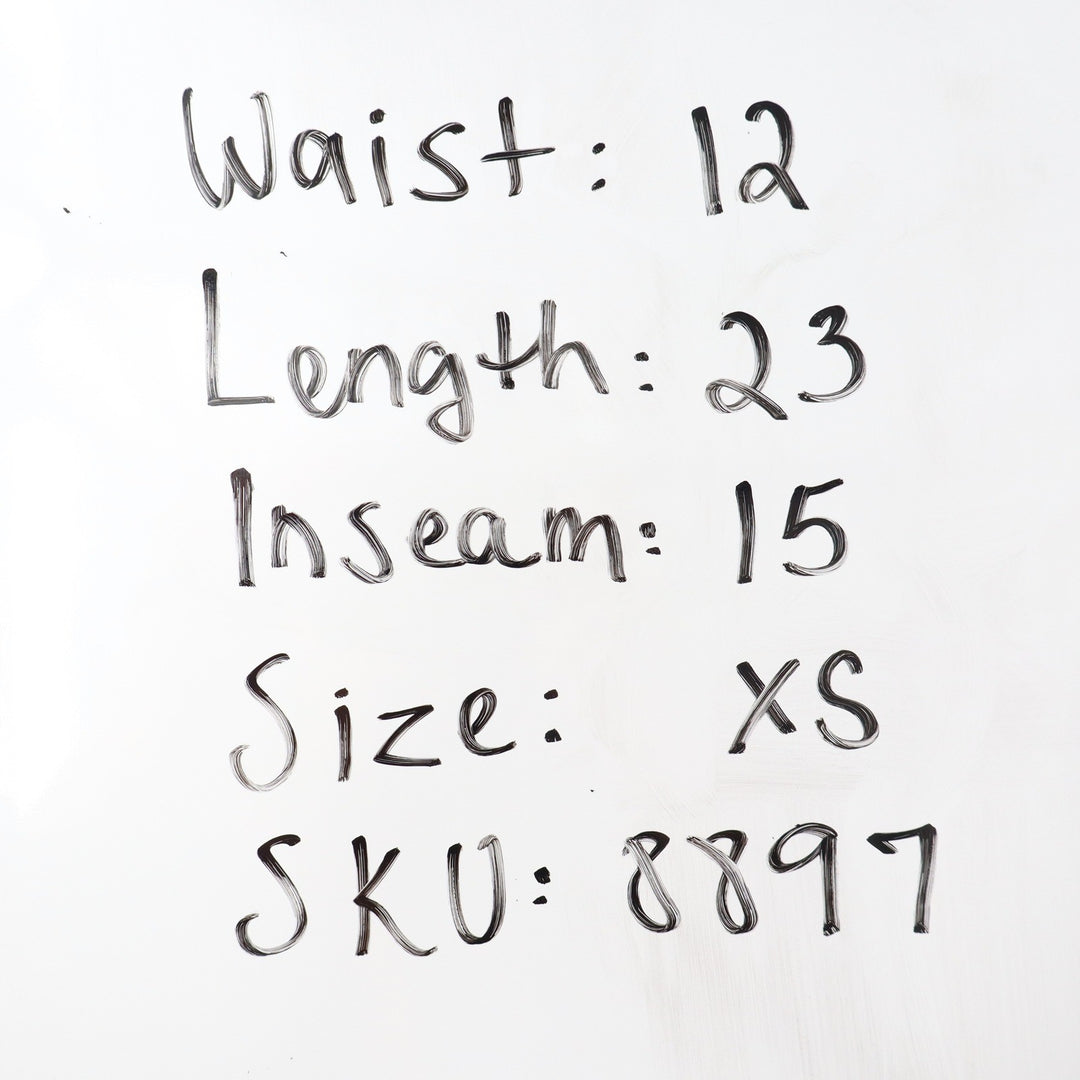 Waist: 12
Length: 23
Inseam: 15
Size: XS
SKU: 8897